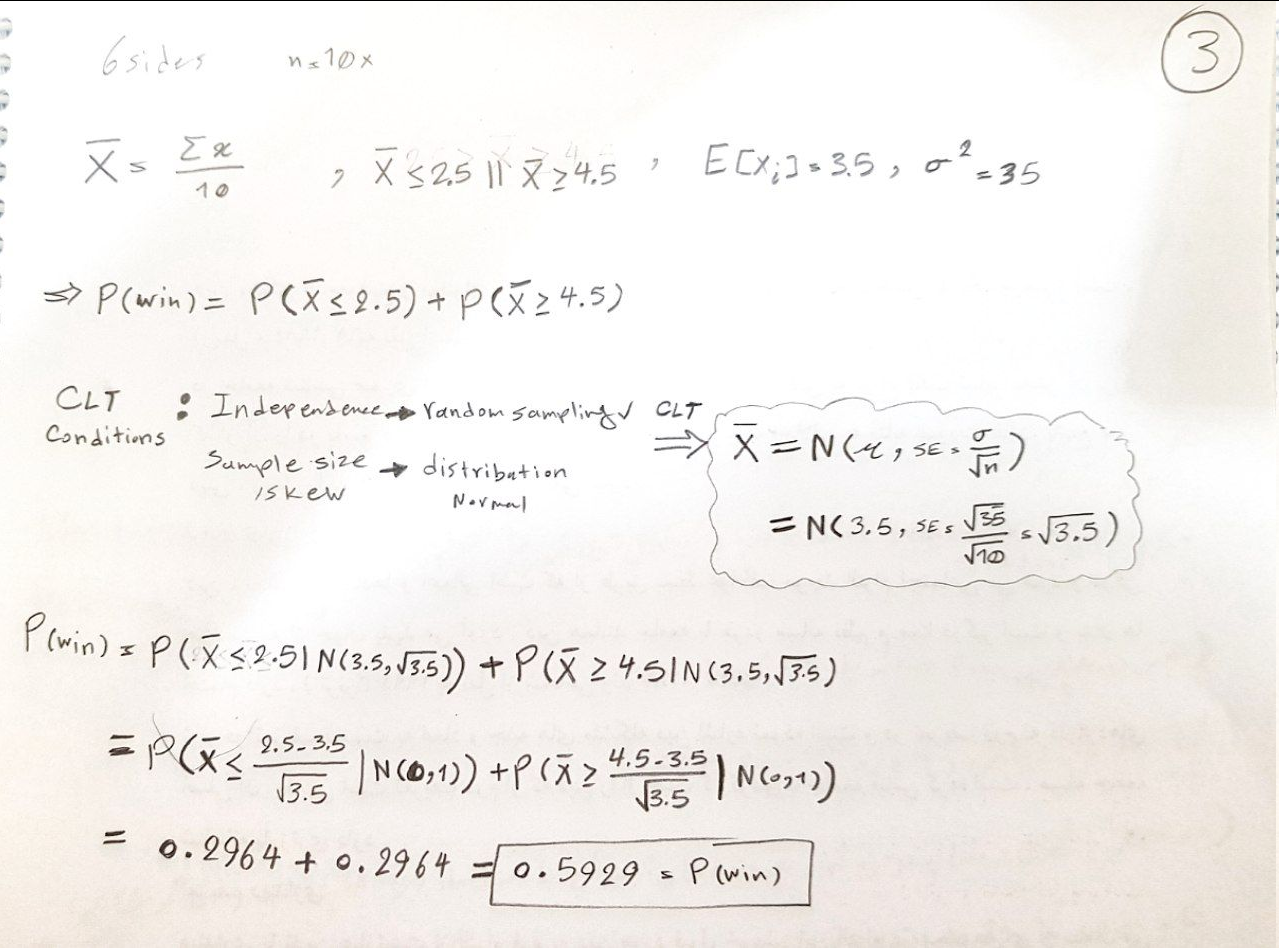 3
6 sides n=10x
X̄ = Σx/10 , X̄ ≤ 2.5 || X̄ ≥ 4.5 , E[Xi] = 3.5 , σ² = 35
⇒ P(win) = P(X̄ ≤ 2.5) + P(X̄ ≥ 4.5)
CLT Conditions : Independence → random sampling ✓
Sample size / skew → distribution Normal
CLT ⇒ X̄ = N(μ, SE = σ/√n)
= N(3.5, SE = √35/√10 = √3.5)
P(win) = P(X̄ ≤ 2.5 | N(3.5, √3.5)) + P(X̄ ≥ 4.5 | N(3.5, √3.5)
= P(X̄ ≤ (2.5-3.5)/√3.5 | N(0,1)) + P(X̄ ≥ (4.5-3.5)/√3.5 | N(0,1))
= 0.2964 + 0.2964 = 0.5929 = P(win)